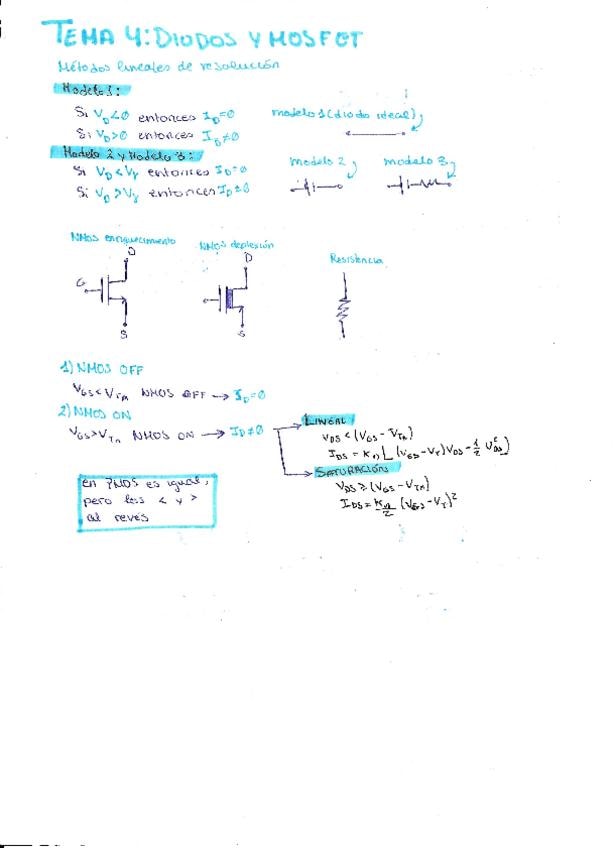 TEMA 4: DIODOS Y MOSFET
Métodos lineales de resolución
Modelo 1:
Si V_D<0 entonces I_D=0
modelo 1 (diodo ideal)
Si V_D>0 entonces I_D≠0
Modelo 2 y Modelo 3:
Si V_D < Vγ entonces I_D=0
modelo 2
modelo 3
Si V_D > Vγ entonces I_D≠0
NMOS enriquecimiento
NMOS deplexión
Resistencia
D
D
G
S
S
1) NMOS OFF
V_GS < V_Tn NMOS OFF → I_D=0
2) NMOS ON
V_GS > V_Tn NMOS ON → I_D≠0
LINEAL
V_DS < (V_GS - V_Tn)
I_DS = K_n [(V_GS - V_T) V_DS - 1/2 V_DS^2]
SATURACIÓN
V_DS ≥ (V_GS - V_Tn)
I_DS = K_n/2 (V_GS - V_T)^2
en PMOS es igual,
pero los < y >
al revés